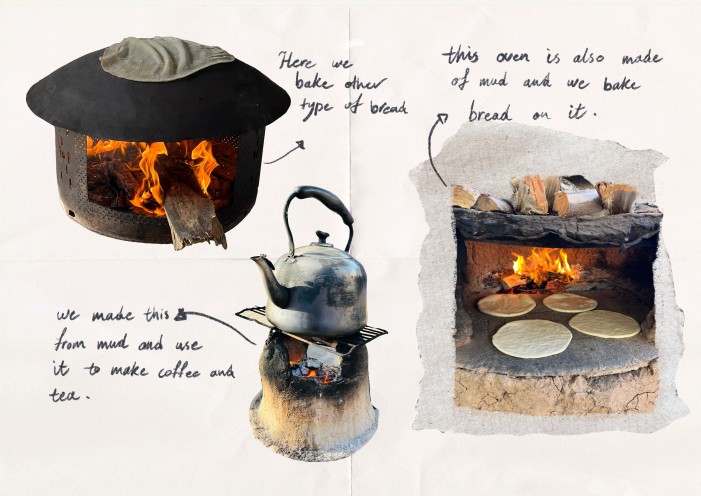 Here we
bake other
type of bread
this oven is also made
of mud and we bake
bread on it.
we made this
from mud and use
it to make coffee and
tea.